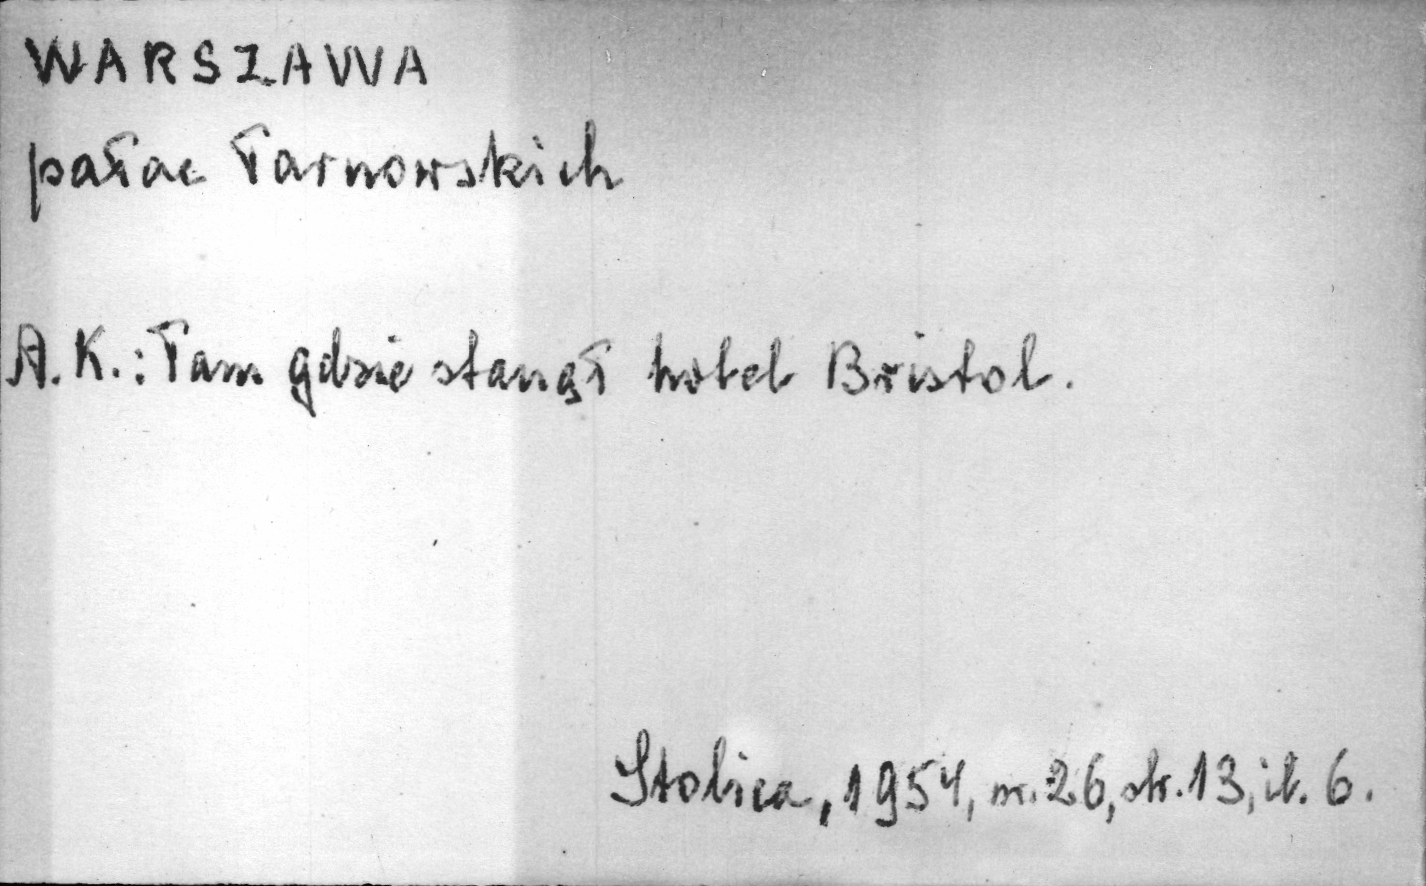 WARSZAWA
pałac Tarnowskich
A.K.: Tam gdzie stanął hotel Bristol.
Stolica, 1954, nr. 26, str. 13, il. 6.